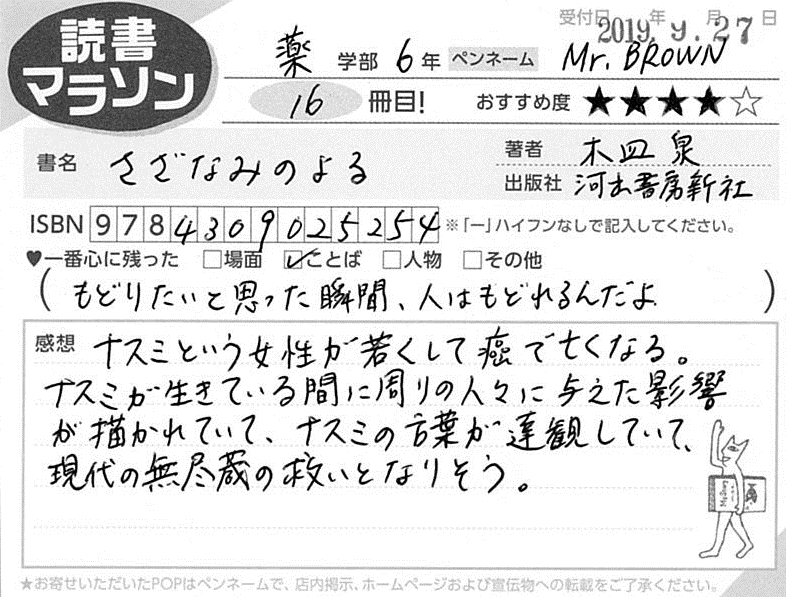 読書
マラソン
受付日 2019年 9月 27日
薬 学部 6年 ペンネーム Mr. BROWN
16 冊目! おすすめ度 ★★★★☆
書名 さざなみのよる
著者 木皿 泉
出版社 河出書房新社
ISBN 9784309025254 ※「ー」ハイフンなしで記入してください。
♥一番心に残った □場面 ☑ことば □人物 □その他
(もどりたいと思った瞬間、人はもどれるんだよ)
感想 ナスミという女性が若くして癌で亡くなる。
ナスミが生きている間に周りの人々に与えた影響
が描かれていて、ナスミの言葉が達観していて、
現代の無尽蔵の救いとなりそう。
★お寄せいただいたPOPはペンネームで、店内掲示、ホームページおよび宣伝物への転載をご了承ください。